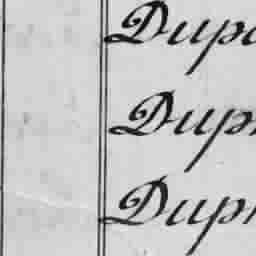 Dupa
Dupr
Dupr